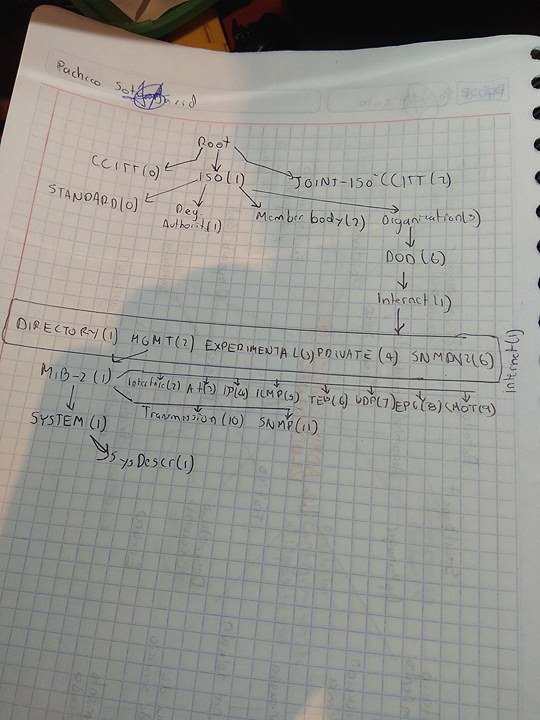 Pacheco
Root
CCITT(0)
ISO(1)
JOINT-ISO-CCITT(2)
STANDARD(0)
Reg.
Authority(1)
Member body(2)
Organization(3)
DOD(6)
Internet(1)
DIRECTORY(1) MGMT(2) EXPERIMENTAL(3) PRIVATE(4)
internet(1)
MIB-2(1)
Interface(2) At(3) IP(4) ICMP(5) TEP(6) UDP(7) EPG(8) CMOT(9)
SYSTEM(1)
Transmission(10) SNMP(11)
SysDescr(1)